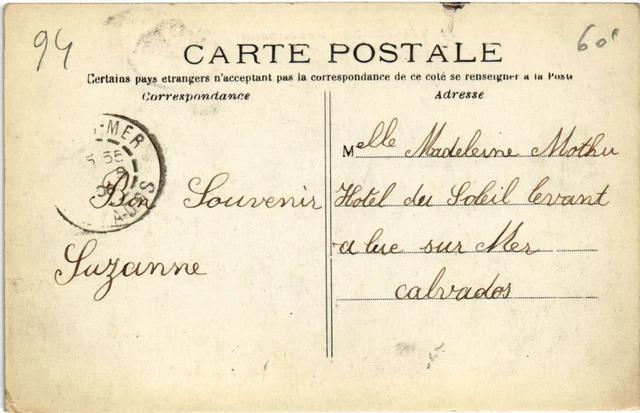 94
60c
CARTE POSTALE
Certains pays etrangers n'acceptant pas la correspondance de ce coté se renseigner a la Poste
Correspondance
Adresse
-MER
55
Bon Souvenir
Suzanne
Melle Madeleine Mothu
Hotel du Soleil levant
a luc sur Mer
calvados